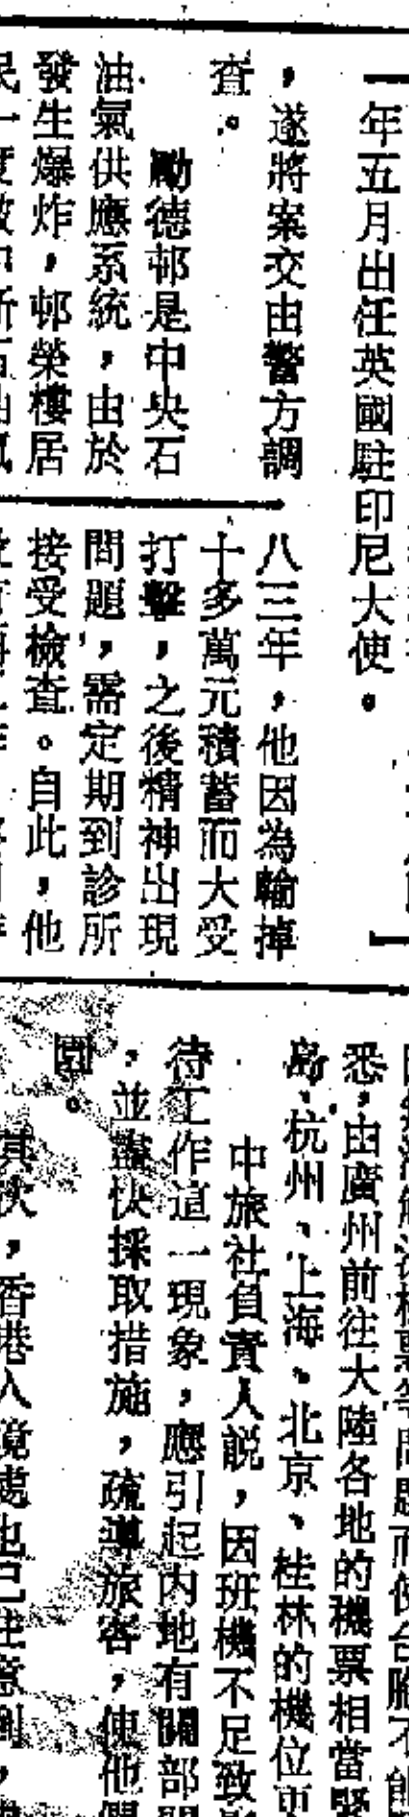 年五月出任英國駐印尼大使。
，遂將案交由警方調
查。
勵德邨是中央石
油氣供應系統，由於
發生爆炸，邨榮樓居
八三年，他因為輸掉
十多萬元積蓄而大受
打擊，之後精神出現
問題，需定期到診所
接受檢查。自此，他
悉，由廣州前往大陸各地的機票相當
島、杭州、上海、北京、桂林的機位更
中旅社負責人說，因班機不足致
待工作這一現象，應引起內地有關部
，並盡快採取措施，疏導旅客，使他
。
其次，香港入境處也已注意到，